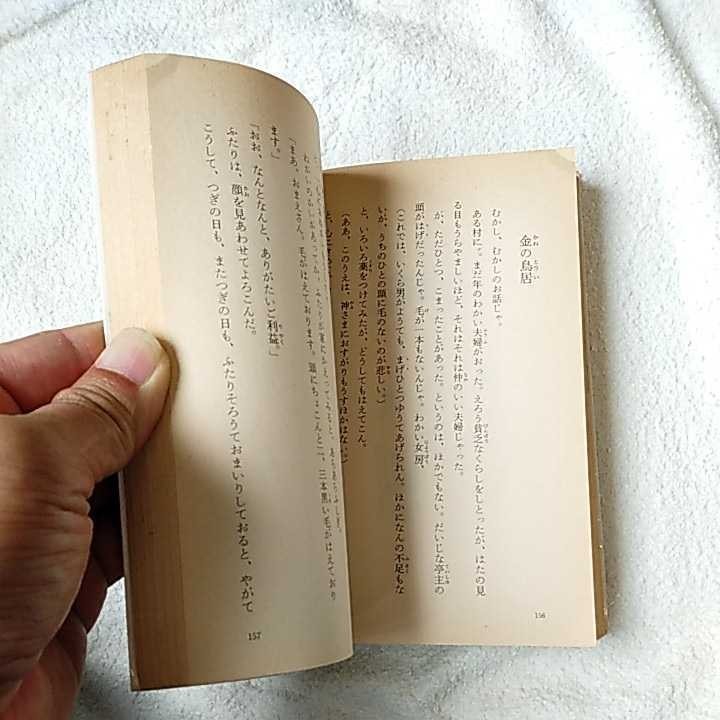 金の鳥居
むかし、むかしのお話じゃ。
ある村に。まだ年のわかい夫婦がおった。えろう貧乏なくらしをしとったが、はたの見
る目もうらやましいほど、それはそれは仲のいい夫婦じゃった。
が、ただひとつ、こまったことがあった。というのは、ほかでもない。だいじな亭主の
頭がはげだったんじゃ。毛が一本もないんじゃ。わかい女房、
(これでは、いくら男がようても、まげひとつゆうてあげられん。ほかになんの不足もな
いが、うちのひとの頭に毛のないのが悲しい。)
と、いろいろ薬をつけてみたが、どうしてもはえてこん。
(ああ、このうえは、神さまにおすがりもうすほかはない)
156
三本黒い毛がはえており
「まあ、おまえさん。毛がはえております。頭にちょこんと二、
ます。」
「おお、なんとなんと、ありがたいご利益。」
ふたりは、顔を見あわせてよろこんだ。
こうして、つぎの日も、またつぎの日も、ふたりそろうておまいりしておると、やがて
157